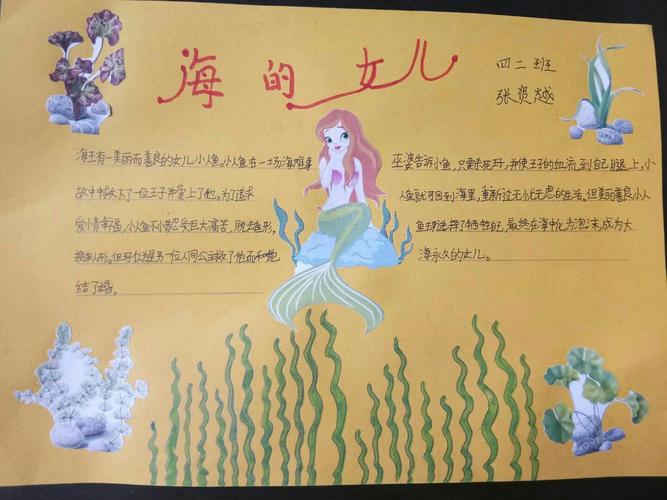 海的女儿
四二班
张贺越
海王有一美丽而善良的女儿小人鱼。小人鱼在一场海难事
故中救下了一位王子并爱上了他。为了追求
爱情幸福,小人鱼不惜忍受巨大痛苦,脱去鱼形,
换来人形。但王子却认为另一位人间公主救了他而和她
结了婚。
巫婆告诉小鱼,只要杀死王子,并使王子的血流到自己腿上,小
人鱼就可回到海里,重新过无忧无虑的生活。但美丽善良小人
鱼选择了牺牲自己,最终在海中化为泡沫成为大
海永久的女儿。